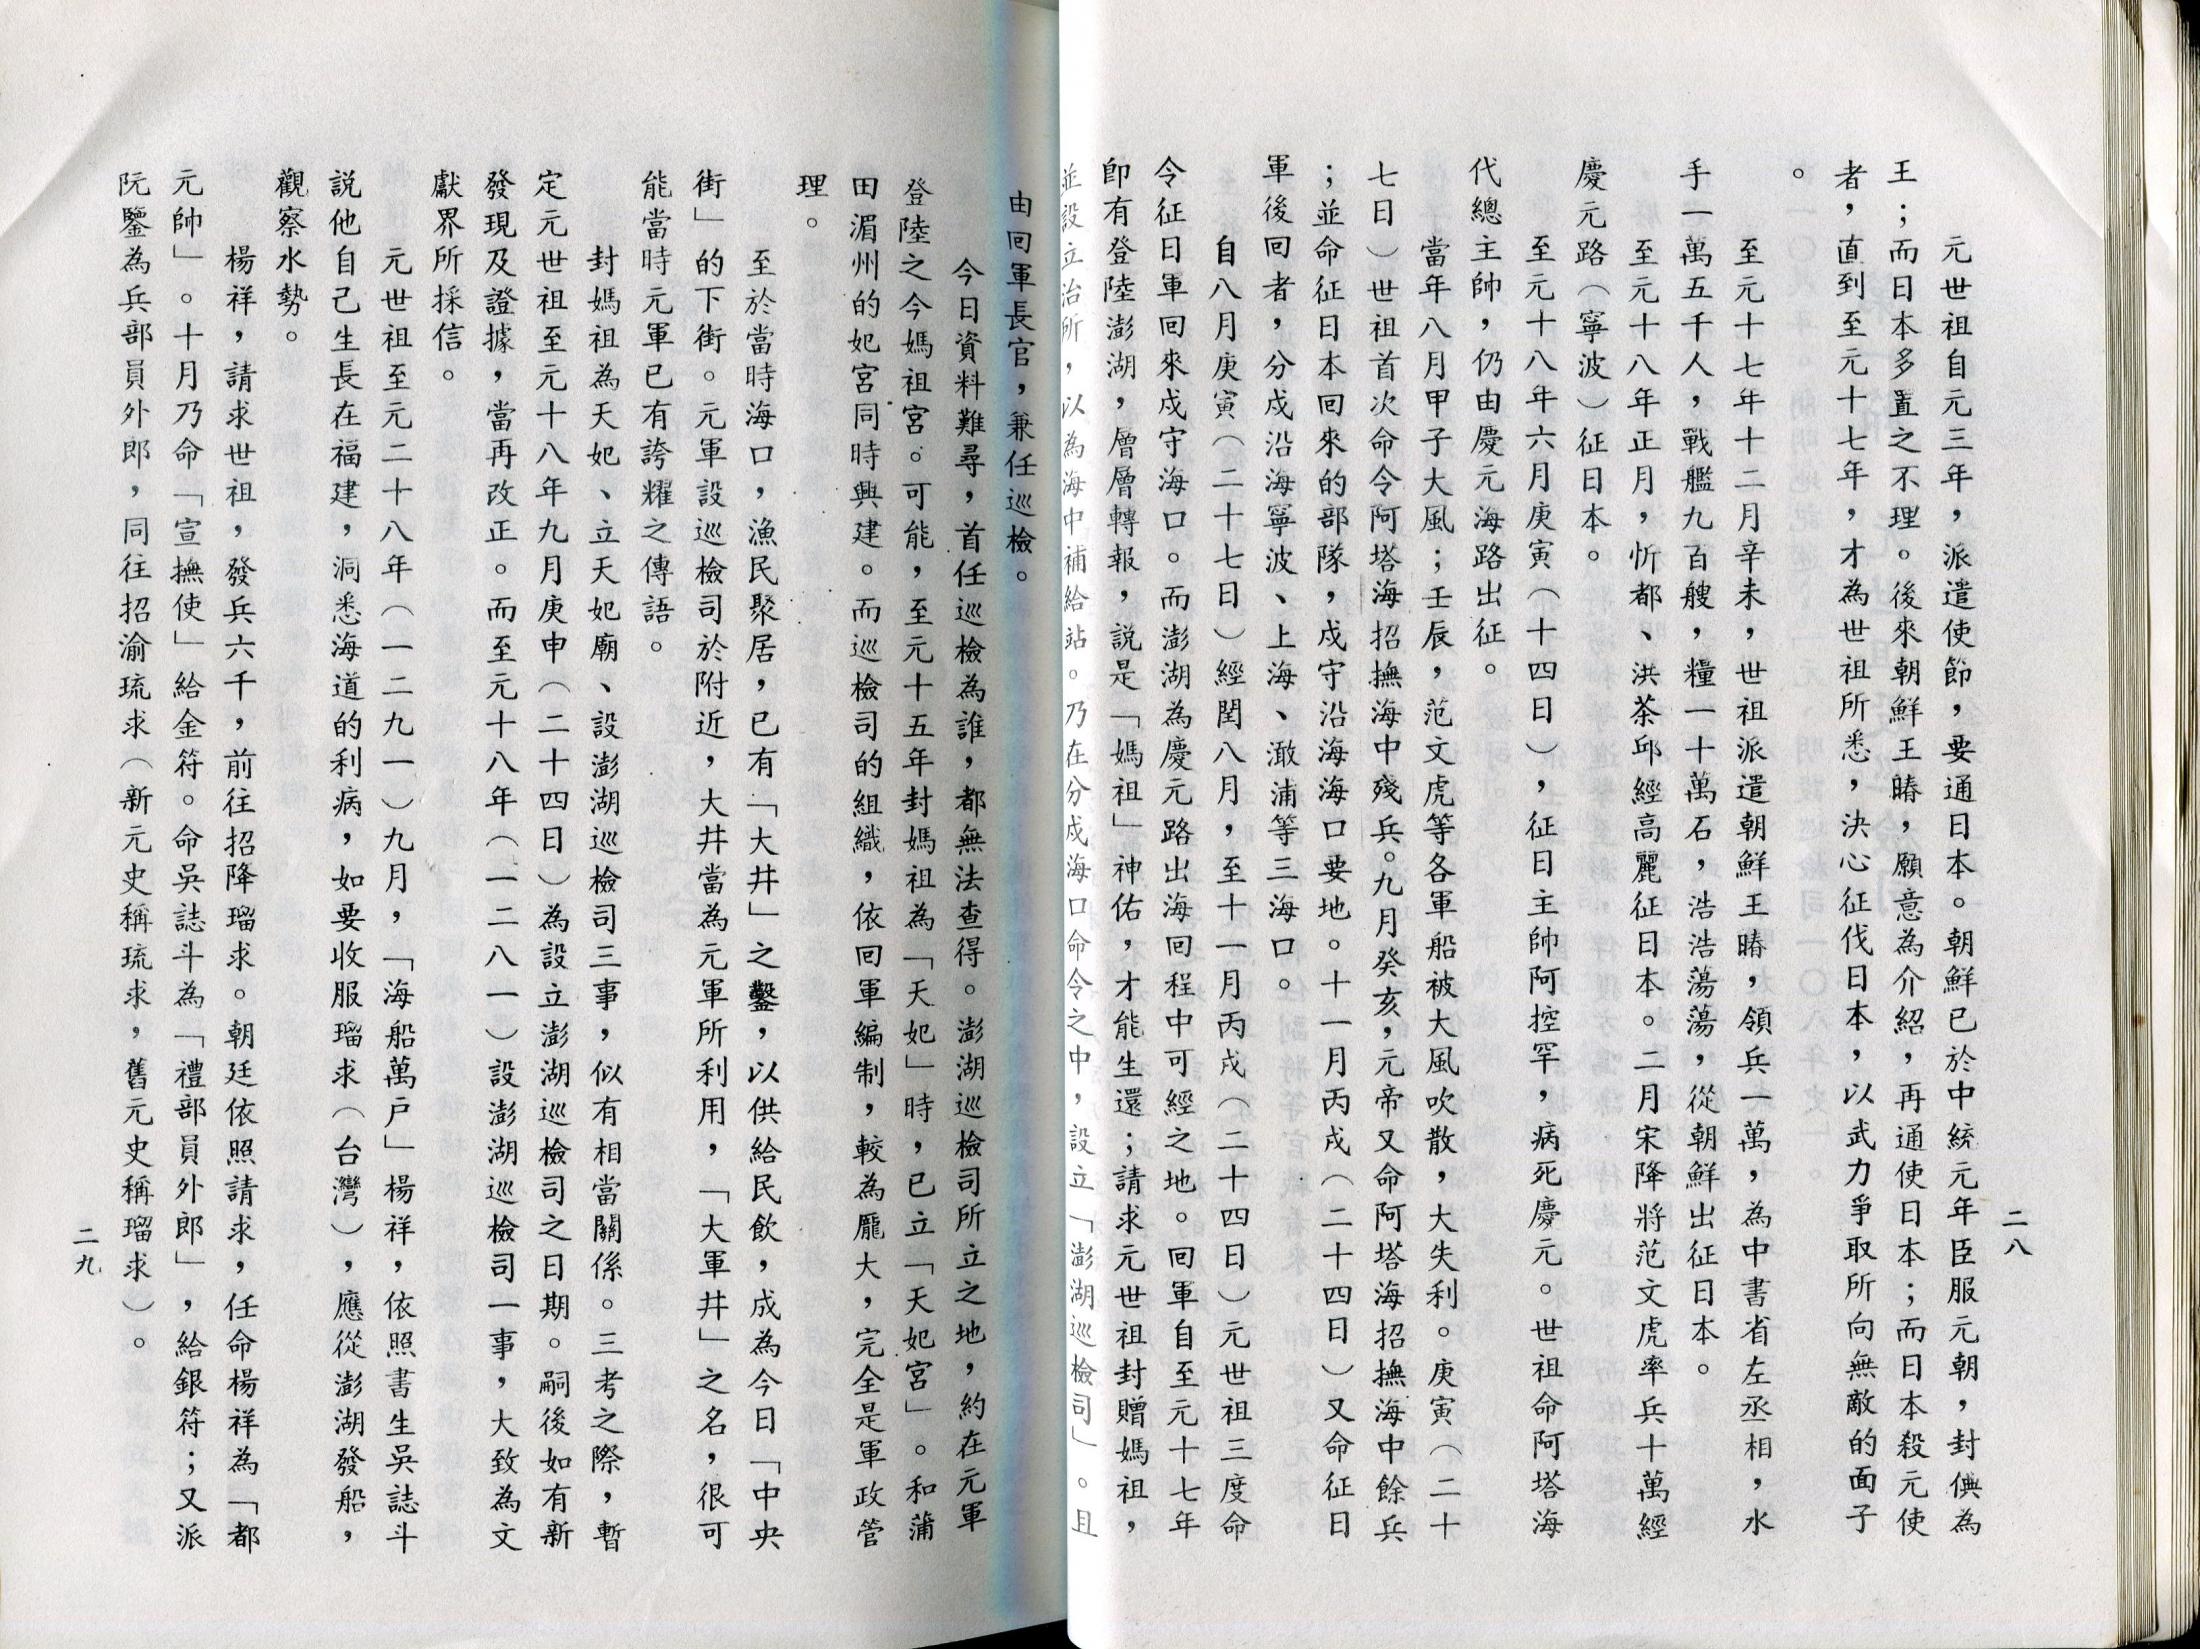 元世祖自元三年，派遣使節，要通日本。朝鮮已於中統元年臣服元朝，封倎為
王；而日本多置之不理。後來朝鮮王賰，願意為介紹，再通使日本；而日本殺元使
者，直到至元十七年，才為世祖所悉，決心征伐日本，以武力爭取所向無敵的面子
。
至元十七年十二月辛未，世祖派遣朝鮮王賰，領兵一萬，為中書省左丞相，水
手一萬五千人，戰艦九百艘，糧一十萬石，浩浩蕩蕩，從朝鮮出征日本。
至元十八年正月，忻都、洪茶邱經高麗征日本。二月宋降將范文虎率兵十萬經
慶元路（寧波）征日本。
至元十八年六月庚寅（十四日），征日主帥阿控罕，病死慶元。世祖命阿塔海
代總主帥，仍由慶元海路出征。
當年八月甲子大風；壬辰，范文虎等各軍船被大風吹散，大失利。庚寅（二十
七日）世祖首次命令阿塔海招撫海中殘兵。九月癸亥，元帝又命阿塔海招撫海中餘兵
；並命征日本回來的部隊，戍守沿海海口要地。十一月丙戌（二十四日）又命征日
軍後回者，分戍沿海寧波、上海、澉浦等三海口。
自八月庚寅（二十七日）經閏八月，至十一月丙戌（二十四日）元世祖三度命
令征日軍回來戍守海口。而澎湖為慶元路出海回程中可經之地。回軍自至元十七年
即有登陸澎湖，層層轉報，說是「媽祖」神佑，才能生還；請求元世祖封贈媽祖，
並設立治所，以為海中補給站。乃在分戍海口命令之中，設立「澎湖巡檢司」。且
二八
由回軍長官，兼任巡檢。
今日資料難尋，首任巡檢為誰，都無法查得。澎湖巡檢司所立之地，約在元軍
登陸之今媽祖宮。可能，至元十五年封媽祖為「天妃」時，已立「天妃宮」。和蒲
田湄州的妃宮同時興建。而巡檢司的組織，依回軍編制，較為龐大，完全是軍政管
理。
至於當時海口，漁民聚居，已有「大井」之鑿，以供給民飲，成為今日「中央
街」的下街。元軍設巡檢司於附近，大井當為元軍所利用，「大軍井」之名，很可
能當時元軍已有誇耀之傳語。
封媽祖為天妃、立天妃廟、設澎湖巡檢司三事，似有相當關係。三考之際，暫
定元世祖至元十八年九月庚申（二十四日）為設立澎湖巡檢司之日期。嗣後如有新
發現及證據，當再改正。而至元十八年（一二八一）設澎湖巡檢司一事，大致為文
獻界所採信。
元世祖至元二十八年（一二九一）九月，「海船萬戶」楊祥，依照書生吳誌斗
說他自己生長在福建，洞悉海道的利病，如要收服瑠求（台灣），應從澎湖發船，
觀察水勢。
楊祥，請求世祖，發兵六千，前往招降瑠求。朝廷依照請求，任命楊祥為「都
元帥」。十月乃命「宣撫使」給金符。命吳誌斗為「禮部員外郎」，給銀符；又派
阮鑒為兵部員外郎，同往招渝琉求（新元史稱琉求，舊元史稱瑠求）。
二九